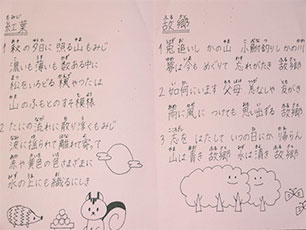 もみじ
紅葉
1 秋の夕日に 照る山もみじ
濃いも薄いも 数ある中に
松をいろどる 楓やつたは
山のふもとの すそ模様
2 たにの流れに 散り浮くもみじ
波に揺られて 離れて寄って
赤や黄色の 色さまざまに
水の上にも 織るにしき
ふるさと
故郷
1 兎追いし かの山 小鮒釣りし かの川
夢は今も めぐりて 忘れがたき 故郷
2 如何にいます 父母 恙なしや 友がき
雨に風に つけても 思い出ずる 故郷
3 志を はたして いつの日にか 帰らん
山は青き 故郷 水は清き 故郷